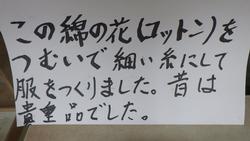 この綿の花(コットン)を
つむいで細い糸にして
服をつくりました。昔は
貴重品でした。